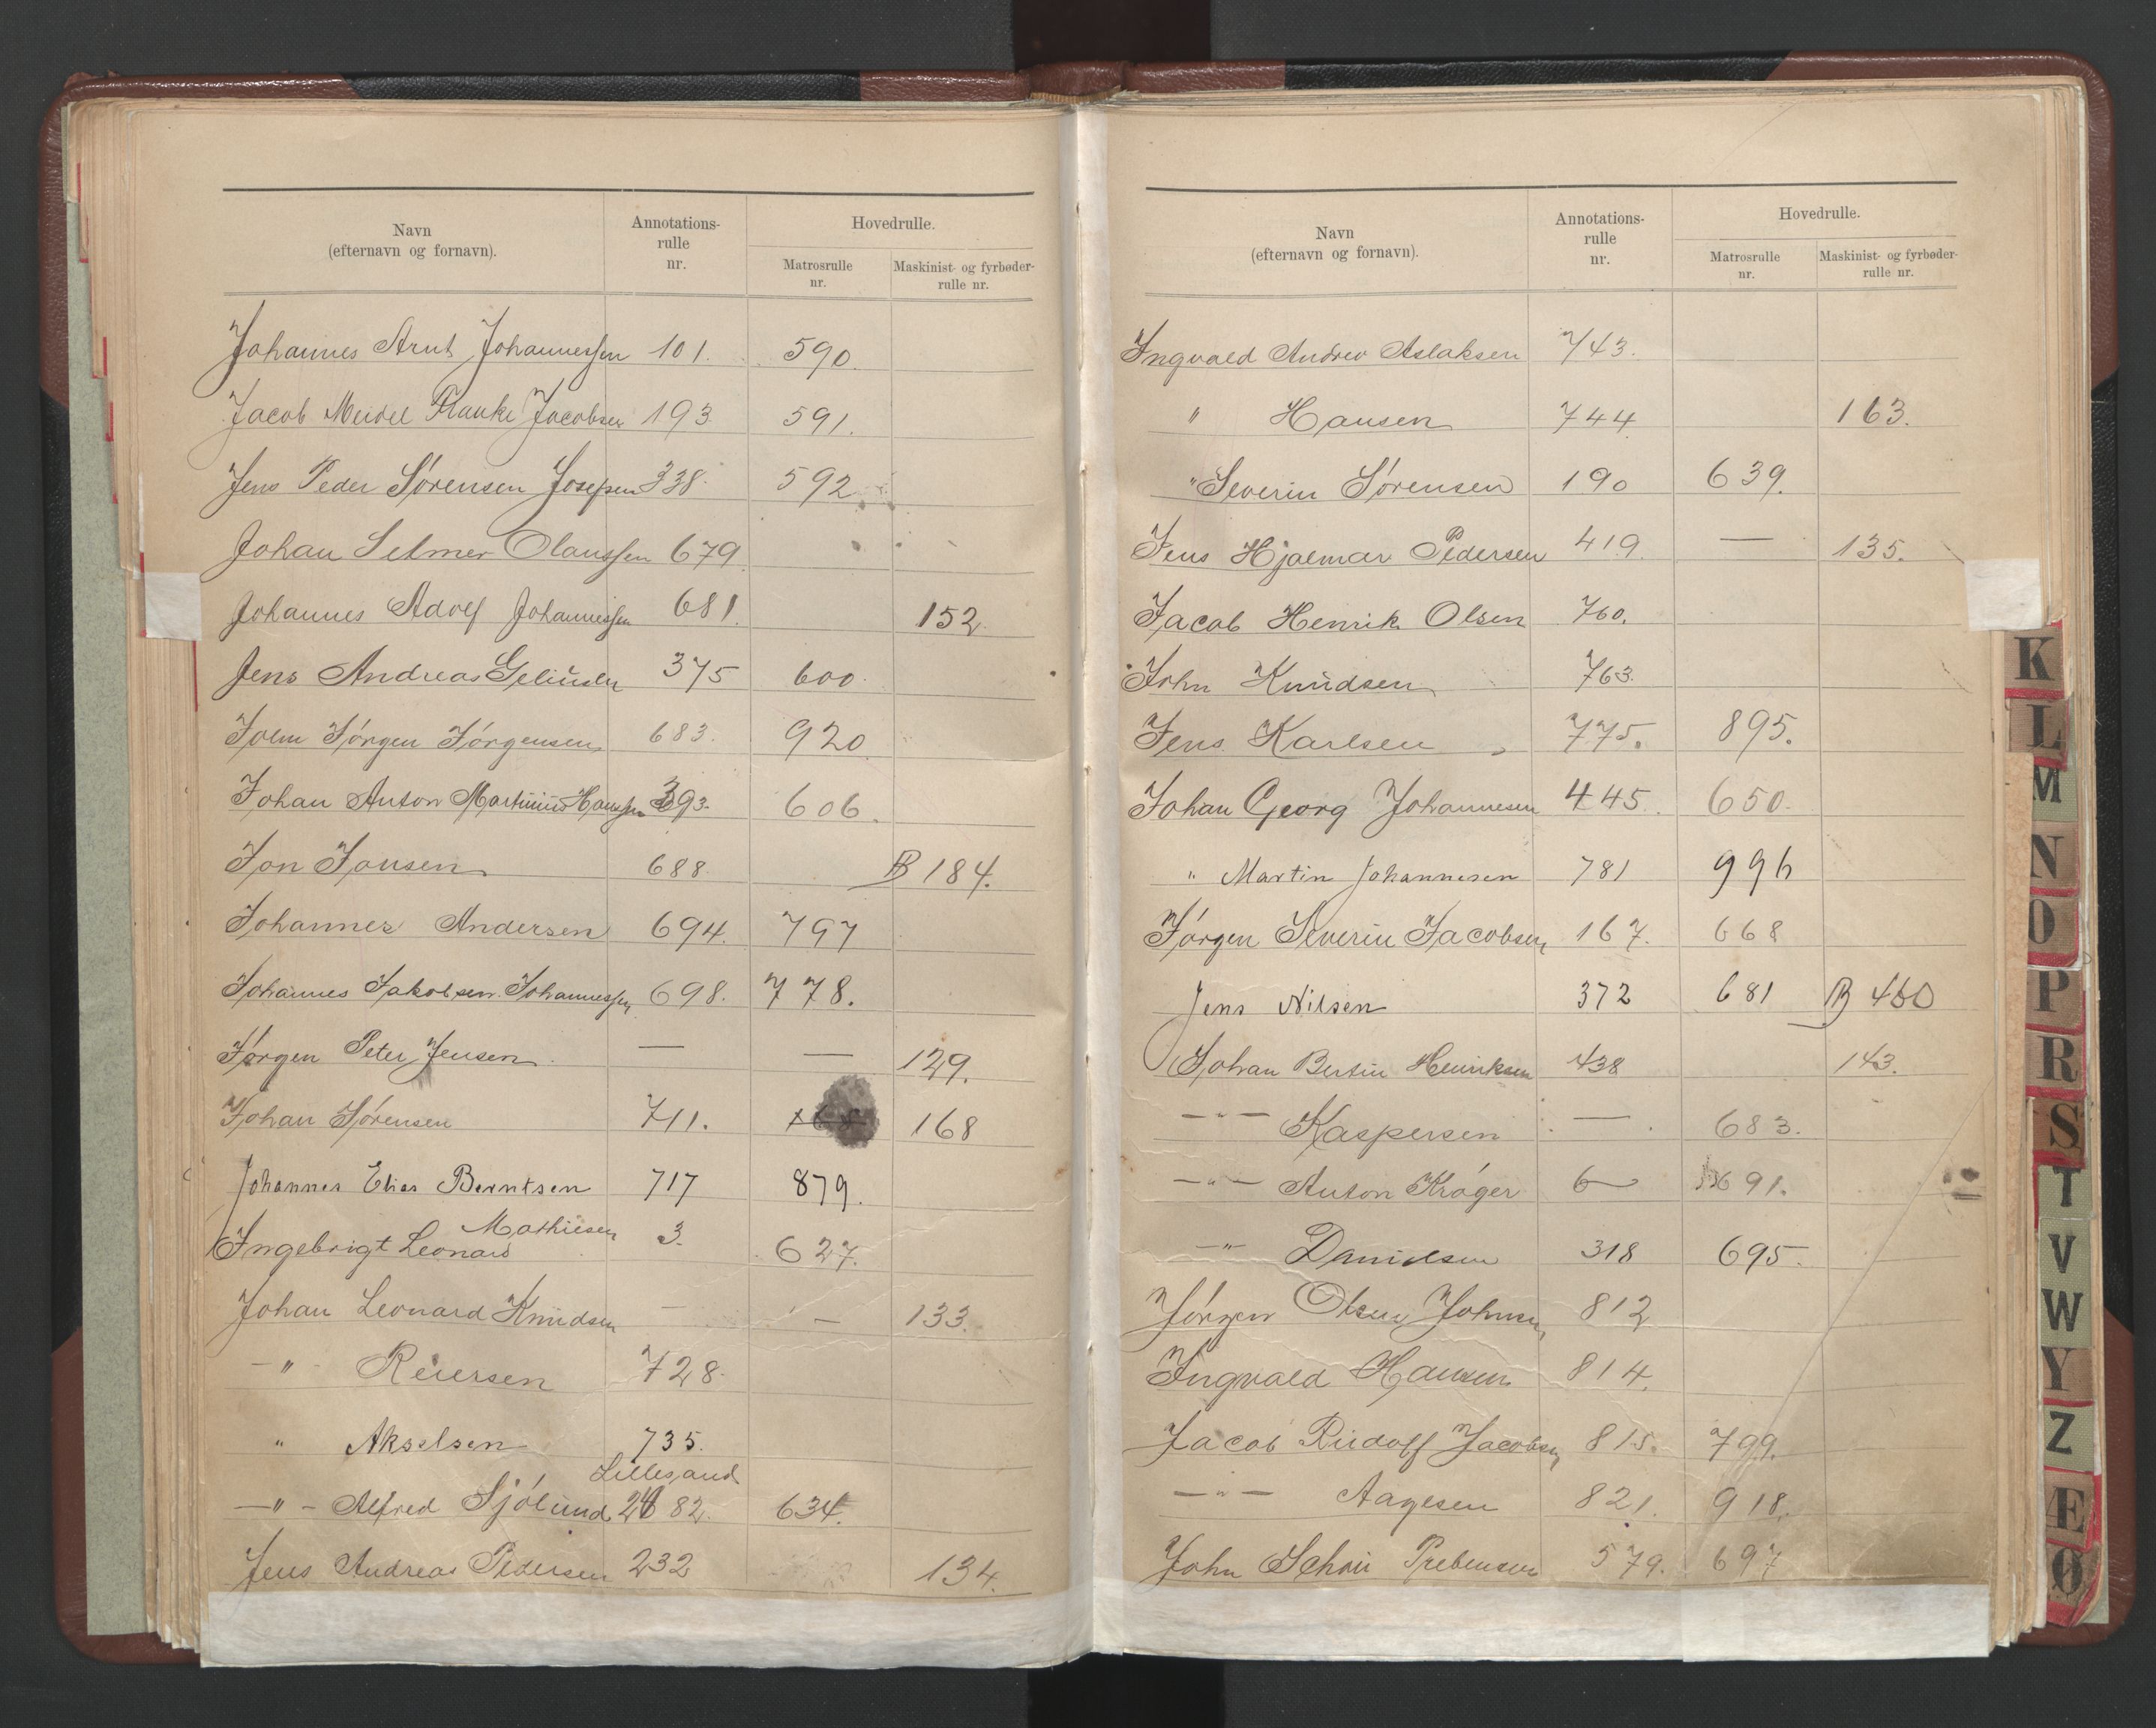 Navn
(efternavn og fornavn).
Annotations-
rulle
nr.
Hovedrulle.
Matrosrulle
nr.
Maskinist- og fyrbøder-
rulle nr.
Johannes Arnt Johannessen 101. 590.
Jacob Meidel Jacobsen 193 591.
Jens Peder Sørensen Josefsen 338. 592
Johan Selmer Olaussen 679
Johannes Adolf Johannessen 681. 152.
Jens Andreas 375 600.
Jørgen Jørgensen 683. 920
Johan Anton Martinius Hanssen 393. 606.
Jon Jonsen 688. B 184.
Johannes Andersen 694. 797
Johannes Jakobsen Johannessen 698. 778.
Jørgen Peter Jensen — — 129.
Johan Sørensen 711. 168
Johannes Elias Berntsen 717 879.
Mathiesen
Ingebrigt Leonard 3. 627.
Johan Leonard Knudsen — — 133.
— " — Reiersen 728.
" Akselsen 735.
Lillesand
— " — Alfred Sjölund 82. 634.
Jens Andreas Pedersen 232 134.
Navn
(efternavn og fornavn).
Annotations-
rulle
nr.
Hovedrulle.
Matrosrulle
nr.
Maskinist- og fyrbøder-
rulle nr.
Ingvald Andreo Aslaksen 743.
" Hansen 744 163.
" Severin Sørensen 190 639.
Jens Hjalmar Pedersen 419. — 135.
Jacob Henrik Olsen 760.
John Knudsen 763.
Jens Karlsen 775. 895.
Johan Georg Johannesen 445. 650.
" Martin Johannesen 781 996
Jørgen Severin Jacobsen 167. 668
Jens Nilsen 372 681 B 460
Johan Bertin Henriksen 438 143.
— " — Kaspersen — 683.
— " — Anton Kröger 6 691.
— " — Danielsen 318 695.
Jörgen Olsen Johnsen 812
Ingvald Hansen 814.
Jacob Rudolf Jacobsen 815. 799.
— " — Aagesen 821. 918.
John Schou Prebensen 579. 697
K
L
M
N
O
P
R
S
T
V
W
Y
Z
Æ
Ø